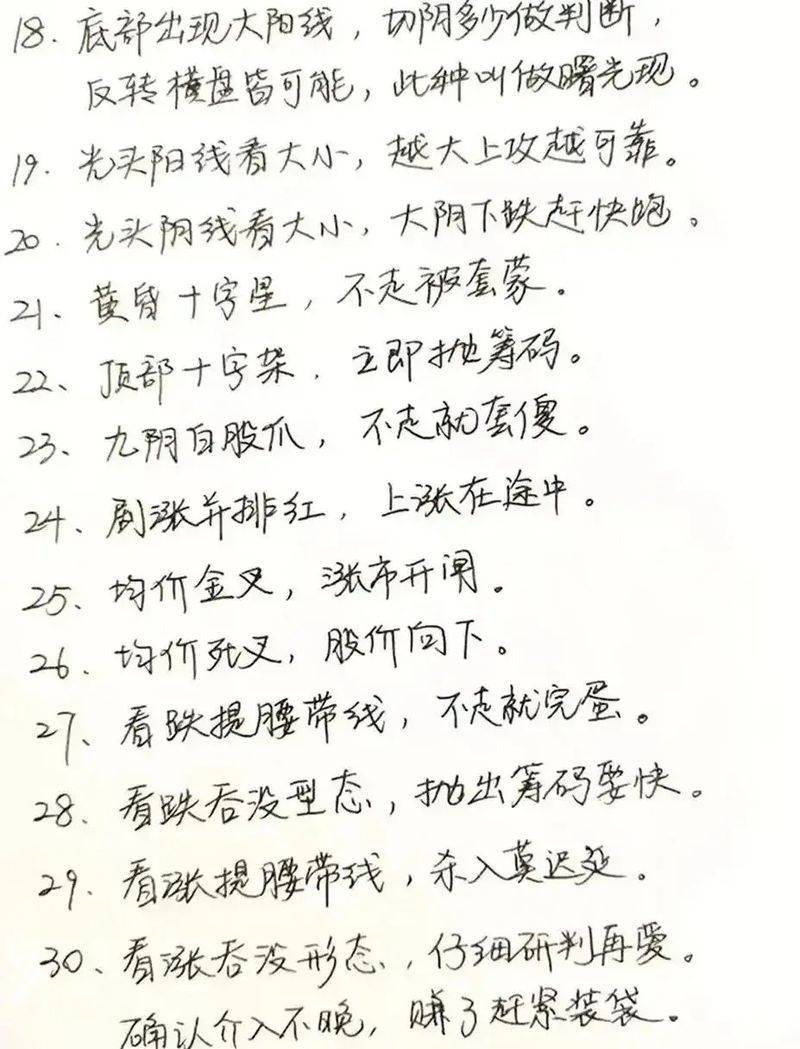 18. 底部出现大阳线，切阴多少做判断，
反转横盘皆可能，此种叫做曙光现。
19. 光头阳线看大小，越大上攻越可靠。
20. 光头阴线看大小，大阴下跌赶快跑。
21、黄昏十字星，不走被套蒙。
22、顶部十字架，立即抛筹码。
23、九阴白股爪，不走就套傻。
24、剧涨并排红，上涨在途中。
25、均价金叉，涨市开闸。
26、均价死叉，股价向下。
27、看跌提腰带线，不走就完蛋。
28、看跌吞没型态，抛出筹码要快。
29、看涨提腰带线，杀入莫迟延。
30、看涨吞没形态，仔细研判再爱。
确认介入不晚，赚了赶紧装袋。